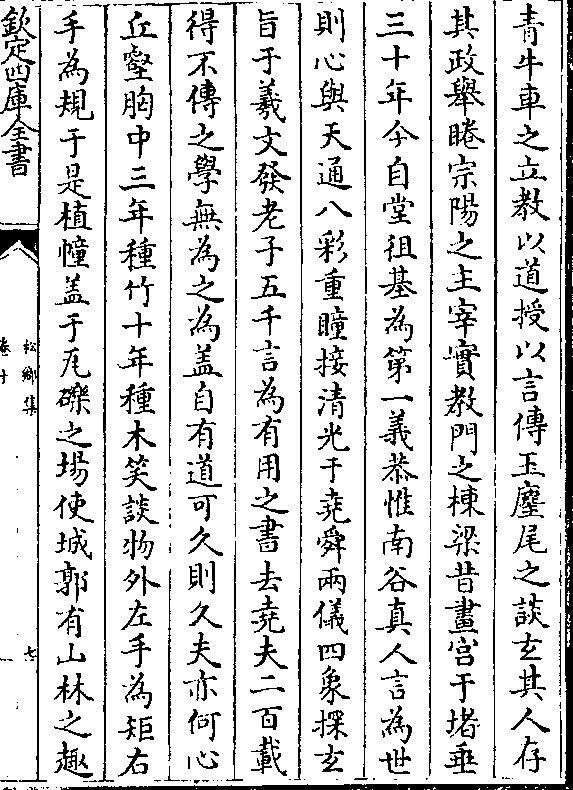 青牛車之立教以道授以言傳玉麈尾之談玄其人存
其政舉睠宗陽之主宰實教門之棟梁昔畫宮于堵垂
三十年今自堂徂基為第一義恭惟南谷真人言為世
則心與天通八彩重瞳接清光于堯舜兩儀四象探玄
旨于羲文發老子五千言為有用之書去堯夫二百載
得不傳之學無為之為蓋自有道可久則久夫亦何心
丘壑胸中三年種竹十年種木笑談物外左手為矩右
手為規于是植幢蓋于瓦礫之場使城郭有山林之趣
欽定四庫全書
松鄉集
卷十
七